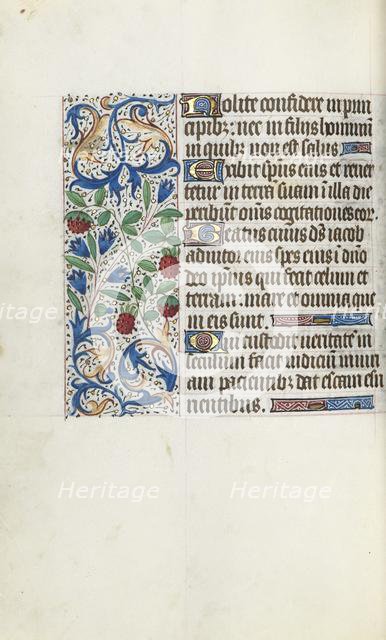 Nolite confidere in prin
cipibz: nec in filijs hominū
in quibz non est salus
Exibit spūs eius et rever
tetur in terrā suam: in illa die
peribūt om̄s cogitationes eor.
Beatus cuius ds̄ iacob
adiutor eius spes eius ī dn̄o
deo ip̄ius qui fecit celum et
terram: mare et omnia que
in eis sunt.
Qui custodit veritatē in
seculum facit iudiciū inuri
am pacientibz dat escam esu
rientibus.
Heritage
Heritage
Heritage
Heritage